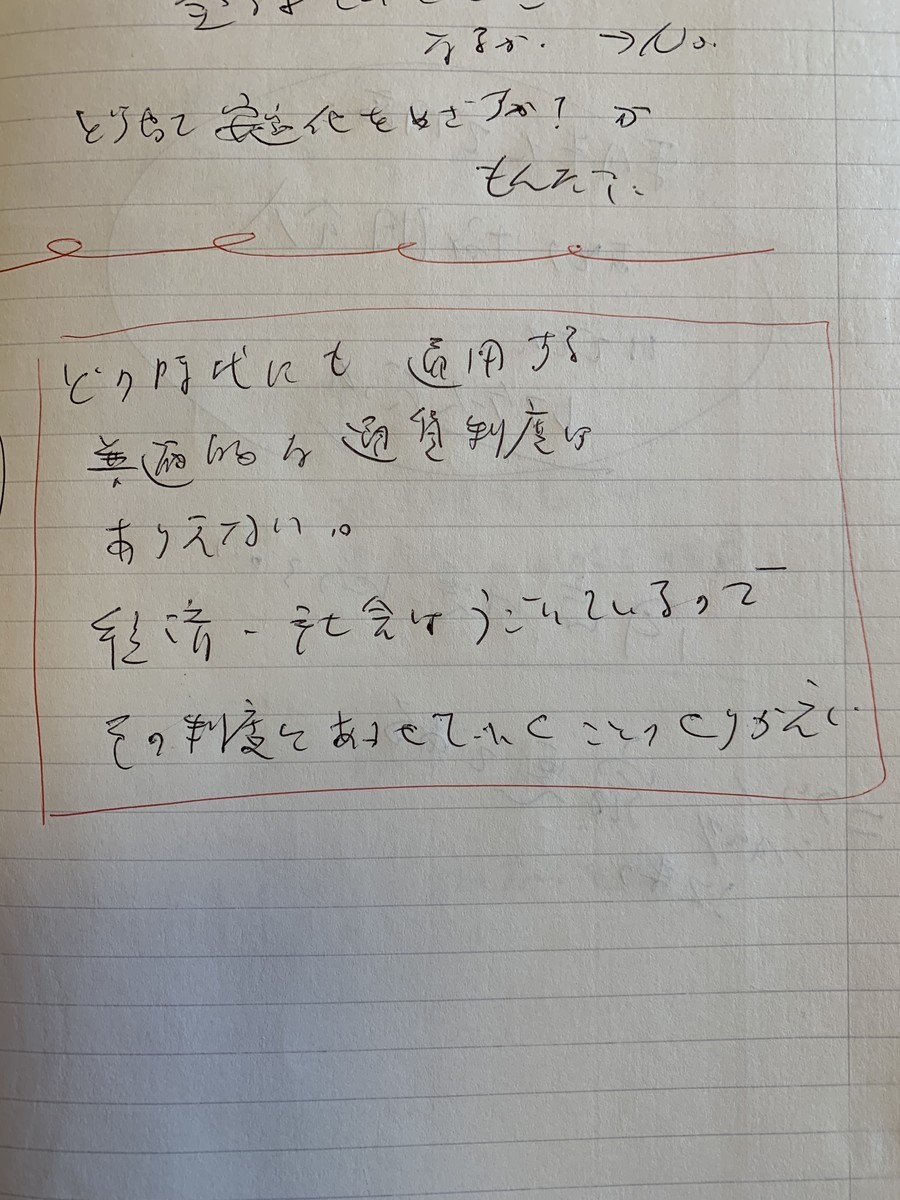 なるか. →No.
どうやって安定化をめざすか?が
もんだい.
どの時代にも通用する
普遍的な通貨制度は
ありえない。
経済-社会はうごいているので
その制度をあわせていくことのくりかえし